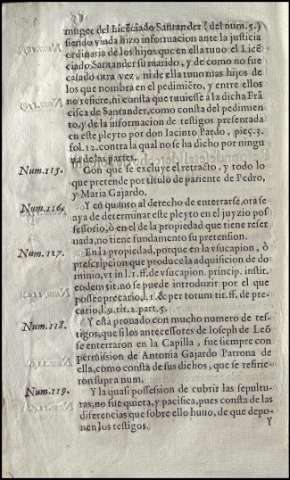 muger del Licēciado Santander (del num. 5.)
siendo viuda hizo informacion ante la justicia
ordinaria de los hijos que en ella tuuo el Licē
ciado Santander su marido, y de como no fue
casado otra vez, ni de ella tuuo mas hijos de
los que nombra en el pedimiēto, y entre ellos
no refiere, ni consta que tuuiesse à la dicha Frā
cisca de Santander, como consta del pedimen-
to, y de la informacion de testigos presentada
en este pleyto por don Iacinto Pardo, pieç. 3.
fol. 12. contra la qual no se ha dicho por ningu
na de las partes.
Num. 115. Con que se excluye el retracto, y todo lo
que pretende por titulo de pariente de Pedro,
y Maria Gajardo.
Num. 116. Y en quanto al derecho de enterrarse, ora se
aya de determinar este pleyto en el juyzio pos
sessorio, ò en el de la propiedad que tiene reser
uada, no tiene fundamento su pretension.
Num. 127. En la propiedad, porque en la vsucapion, ò
prescripcion que produce la adquisicion de do-
minio, vt in l. 1. ff. de vsucapion. princip. instit.
eodem tit. no se puede introduzir por el que
possee precario, l. 1. & per totum tit. ff. de pre-
cario, l. 9. tit. 2. part. 5.
Num. 118. Y està prouado con mucho numero de tes-
tigos, que si los antecessores de Ioseph de Leō
se enterraron en la Capilla, fue siempre con
permission de Antonia Gajardo Patrona de
ella, como consta de sus dichos, que se refirie-
ron supra num.
Num. 119. Y la quasi possession de cubrir las sepultu-
ras, no fue quieta, y pacifica, pues consta de las
diferencias que sobre ello huuo, de que depo-
nen los testigos.
Y